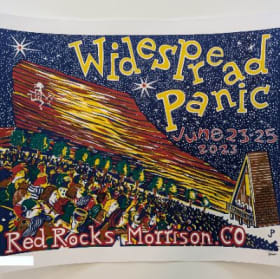 Widespread
Panic
June 23-25
2023
Red Rocks Morrison. CO
JP